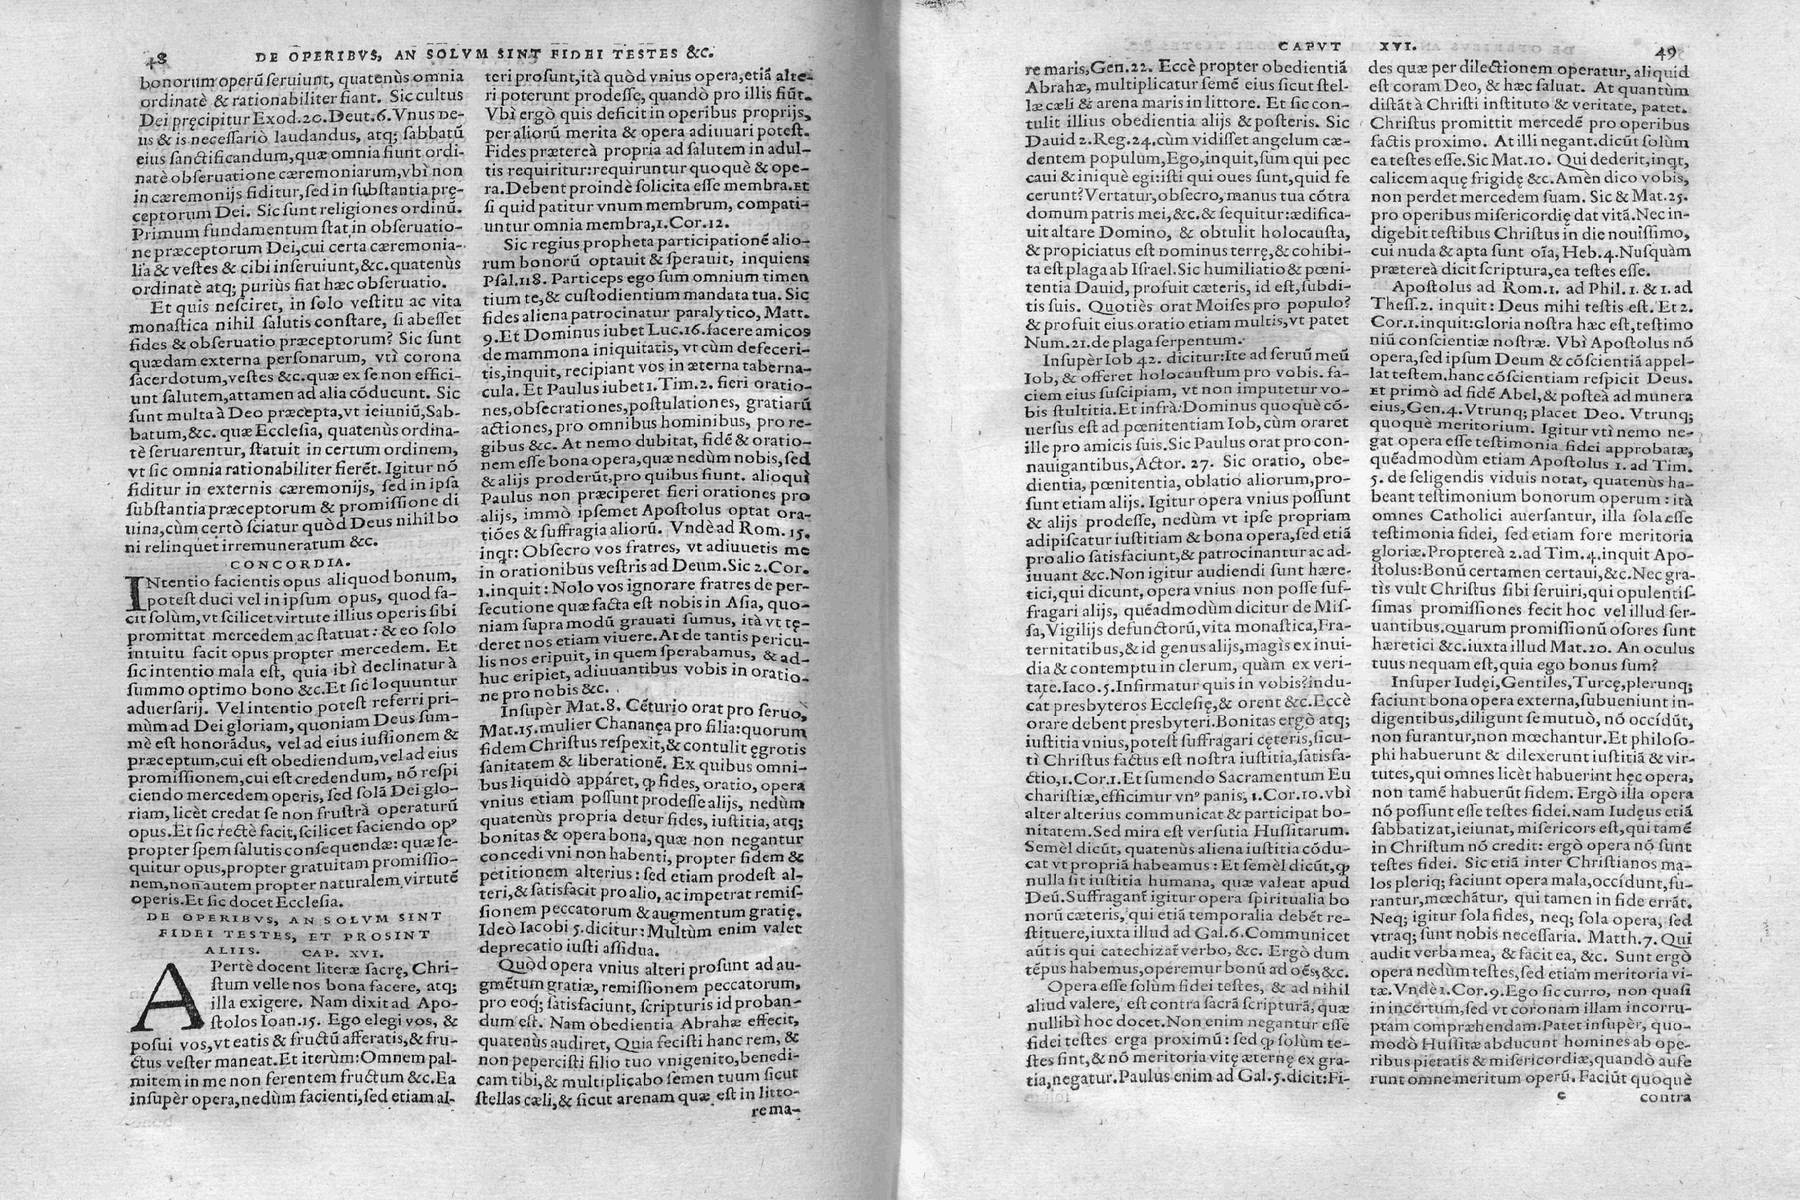 48
DE OPERIBVS, AN SOLVM SINT FIDEI TESTES &c.
bonorum operũ seruiunt, quatenùs omnia
ordinatè & rationabiliter fiant. Sic cultus
Dei pręcipitur Exod.20.Deut.6. Vnus De-
us & is necessariò laudandus, atq; sabbatũ
eius sanctificandum,quæ omnia fiunt ordi-
natè obseruatione cæremoniarum,vbi non
in cæremonijs fiditur,sed in substantia prę-
ceptorum Dei. Sic sunt religiones ordinũ.
Primum fundamentum stat in obseruatio-
ne præceptorum Dei,cui certa cæremonia-
lia & vestes & cibi inseruiunt,&c.quatenùs
ordinatè atq; puriùs fiat hæc obseruatio.
Et quis nesciret, in solo vestitu ac vita
monastica nihil salutis constare, si abesset
fides & obseruatio præceptorum? Sic sunt
quædam externa personarum, vtì corona
sacerdotum,vestes &c.quæ ex se non effici-
unt salutem,attamen ad alia cõducunt. Sic
sunt multa à Deo præcepta,vt ieiuniũ,Sab-
batum,&c. quæ Ecclesia, quatenùs ordina-
tè seruarentur, statuit in certum ordinem,
vt sic omnia rationabiliter fierẽt. Igitur nõ
fiditur in externis cæremonijs, sed in ipsa
substantia præceptorum & promissione di
uina,cùm certò sciatur quòd Deus nihil bo
ni relinquet irremuneratum &c.
CONCORDIA.
INtentio facientis opus aliquod bonum,
potest duci vel in ipsum opus, quod fa-
cit solùm,vt scilicet virtute illius operis sibi
promittat mercedem ac statuat: & eo solo
intuitu facit opus propter mercedem. Et
sic intentio mala est, quia ibi declinatur à
summo optimo bono &c.Et sic loquuntur
aduersarij. Vel intentio potest referri pri-
mùm ad Dei gloriam, quoniam Deus sum-
mè est honorãdus, vel ad eius iussionem &
præceptum,cui est obediendum,vel ad eius
promissionem,cui est credendum, nõ respi
ciendo mercedem operis, sed solã Dei glo-
riam, licèt credat se non frustrà operaturũ
opus.Et sic rectè facit,scilicet faciendo opꝰ
propter spem salutis consequendæ: quæ se-
quitur opus,propter gratuitam promissio-
nem,non autem propter naturalem virtutẽ
operis.Et sic docet Ecclesia.
DE OPERIBVS, AN SOLVM SINT
FIDEI TESTES, ET PROSINT
ALIIS. CAP. XVI.
APertè docent literæ sacrę, Chri-
stum velle nos bona facere, atq;
illa exigere. Nam dixit ad Apo-
stolos Ioan.15. Ego elegi vos, &
posui vos,vt eatis & fructũ afferatis,& fru-
ctus vester maneat.Et iterùm:Omnem pal-
mitem in me non ferentem fructum &c.Ea
insupèr opera,nedùm facienti,sed etiam al-
teri prosunt,ità quòd vnius opera,etiã alte-
ri poterunt prodesse, quandò pro illis fiũt.
Vbì ergò quis deficit in operibus proprijs,
per aliorũ merita & opera adiuuari potest.
Fides prætereà propria ad salutem in adul-
tis requiritur:requiruntur quoquè & ope-
ra.Debent proindè solicita esse membra.Et
si quid patitur vnum membrum, compati-
untur omnia membra,1.Cor.12.
Sic regius propheta participationẽ alio-
rum bonorũ optauit & sperauit, inquiens
Psal.118. Particeps ego sum omnium timen
tium te,& custodientium mandata tua. Sic
fides aliena patrocinatur paralytico, Matt.
9.Et Dominus iubet Luc.16.facere amicos
de mammona iniquitatis, vt cùm defeceri-
tis,inquit,recipiant vos in æterna taberna-
cula. Et Paulus iubet 1.Tim.2. fieri oratio-
nes,obsecrationes,postulationes, gratiarũ
actiones, pro omnibus hominibus, pro re-
gibus &c. At nemo dubitat, fidẽ & oratio-
nem esse bona opera,quæ nedùm nobis,sed
& alijs proderũt,pro quibus fiunt. alioquì
Paulus non præciperet fieri orationes pro
alijs, immò ipsemet Apostolus optat ora-
tiões & suffragia aliorũ. Vndè ad Rom.15.
inqt: Obsecro vos fratres, vt adiuuetis me
in orationibus vestris ad Deum.Sic 2.Cor.
1.inquit: Nolo vos ignorare fratres de per-
secutione quæ facta est nobis in Asia, quo-
niam supra modũ grauati sumus, ità vt tę-
deret nos etiam viuere. At de tantis pericu-
lis nos eripuit, in quem sperabamus, & ad-
huc eripiet, adiuuantibus vobis in oratio-
ne pro nobis &c.
Insupèr Mat.8. Cẽturio orat pro seruo,
Mat.15.mulier Chananęa pro filia:quorum
fidem Christus respexit,& contulit ęgrotis
sanitatem & liberationẽ. Ex quibus omni-
bus liquidò appáret, ꝙ fides, oratio, opera
vnius etiam possunt prodesse alijs, nedùm
quatenùs propria detur fides, iustitia, atq;
bonitas & opera bona, quæ non negantur
concedi vni non habenti, propter fidem &
petitionem alterius: sed etiam prodest al-
teri,& satisfacit pro alio, ac impetrat remis-
sionem peccatorum & augmentum gratię.
Ideò Iacobi 5.dicitur: Multùm enim valet
deprecatio iusti assidua.
Quòd opera vnius alteri prosunt ad au-
gmẽtum gratiæ, remissionem peccatorum,
pro eoq; satisfaciunt, scripturis id proban-
dum est. Nam obedientia Abrahæ effecit,
quatenùs audiret, Quia fecisti hanc rem, &
non pepercisti filio tuo vnigenito,benedi-
cam tibi,& multiplicabo semen tuum sicut
stellas cæli,& sicut arenam quæ est in litto-
re ma-
CAPVT XVI.
49
re maris,Gen.22. Eccè propter obedientiã
Abrahæ, multiplicatur semẽ eius sicut stel-
læ cæli & arena maris in littore. Et sic con-
tulit illius obedientia alijs & posteris. Sic
Dauid 2.Reg.24.cùm vidisset angelum cæ-
dentem populum,Ego,inquit,sum qui pec
caui & iniquè egi:isti qui oues sunt,quid fe
cerunt?Vertatur,obsecro, manus tua cõtra
domum patris mei,&c.& sequitur:ædifica-
uit altare Domino, & obtulit holocausta,
& propiciatus est Dominus terrę,& cohibi-
ta est plaga ab Israel.Sic humiliatio & pœni-
tentia Dauid, profuit cæteris, id est,subdi-
tis suis. Quotiès orat Moises pro populo?
& profuit eius oratio etiam multis,vt patet
Num.21.de plaga serpentum.
Insupèr Iob 42. dicitur:Ite ad seruũ meũ
Iob, & offeret holocaustum pro vobis. fa-
ciem eius suscipiam, vt non imputetur vo-
bis stultitia.Et infrà:Dominus quoquè cõ-
uersus est ad pœnitentiam Iob,cùm oraret
ille pro amicis suis.Sic Paulus orat pro con-
nauigantibus,Actor. 27. Sic oratio, obe-
dientia, pœnitentia, oblatio aliorum,pro-
sunt etiam alijs. Igitur opera vnius possunt
& alijs prodesse, nedùm vt ipse propriam
adipiscatur iustitiam & bona opera,sed etiã
pro alio satisfaciunt,& patrocinantur ac ad-
iuuant &c.Non igitur audiendi sunt hære-
tici,qui dicunt, opera vnius non posse suf-
fragari alijs, quẽadmodùm dicitur de Mis-
sa,Vigilijs defunctorũ,vita monastica,Fra-
ternitatibus,& id genus alijs,magìs ex inui-
dia & contemptu in clerum, quàm ex veri-
tate.Iaco.5.Infirmatur quis in vobis?indu-
cat presbyteros Ecclesię,& orent &c.Eccè
orare debent presbyteri.Bonitas ergò atq;
iustitia vnius,potest suffragari cęteris,sicu-
tì Christus factus est nostra iustitia,satisfa-
ctio,1.Cor.1.Et sumendo Sacramentum Eu
charistiæ,efficimur vnꝰ panis, 1.Cor.10.vbì
alter alterius communicat & participat bo-
nitatem.Sed mira est versutia Hussitarum.
Semèl dicũt, quatenùs aliena iustitia cõdu-
cat vt propriã habeamus: Et semèl dicũt,ꝙ
nulla sit iustitia humana, quæ valeat apud
Deũ.Suffragant̃ igitur opera spiritualia bo
norũ cæteris, qui etiã temporalia debẽt re-
stituere,iuxta illud ad Gal.6.Communicet
aũt is qui catechizat̃ verbo, &c. Ergò dum
tẽpus habemus,operemur bonũ ad oẽs,&c.
Opera esse solùm fidei testes, & ad nihil
aliud valere, est contra sacrã scripturã, quæ
nullibi hoc docet.Non enim negantur esse
fidei testes erga proximũ: sed ꝙ solùm te-
stes sint,& nõ meritoria vitę æternę ex gra-
tia,negatur.Paulus enim ad Gal.5.dicit:Fi-
des quæ per dilectionem operatur, aliquid
est coram Deo, & hæc saluat. At quantùm
distãt à Christi instituto & veritate, patet.
Christus promittit mercedẽ pro operibus
factis proximo. At illi negant.dicũt solùm
ea testes esse.Sic Mat.10. Qui dederit,inqt,
calicem aquę frigidę &c.Amèn dico vobis,
non perdet mercedem suam. Sic & Mat.25.
pro operibus misericordię dat vitã.Nec in-
digebit testibus Christus in die nouissimo,
cui nuda & apta sunt oĩa, Heb.4.Nusquàm
prætereà dicit scriptura,ea testes esse.
Apostolus ad Rom.1. ad Phil.1. & 1. ad
Thess.2. inquit: Deus mihi testis est. Et 2.
Cor.1.inquit:Gloria nostra hæc est,testimo
niũ conscientiæ nostræ. Vbì Apostolus nõ
opera,sed ipsum Deum & cõscientiã appel-
lat testem.hanc cõscientiam respicit Deus.
Et primò ad fidẽ Abel,& posteà ad munera
eius,Gen.4.Vtrunq; placet Deo. Vtrunq;
quoquè meritorium. Igitur vtì nemo ne-
gat opera esse testimonia fidei approbatæ,
quẽadmodùm etiam Apostolus 1. ad Tim.
5. de seligendis viduis notat, quatenùs ha-
beant testimonium bonorum operum: ità
omnes Catholici auersantur, illa sola esse
testimonia fidei, sed etiam fore meritoria
gloriæ.Proptereà 2.ad Tim.4.inquit Apo-
stolus:Bonũ certamen certaui,&c.Nec gra-
tìs vult Christus sibi seruiri,qui opulentis-
simas promissiones fecit hoc vel illud ser-
uantibus.Quarum promissionũ osores sunt
hæretici &c.iuxta illud Mat.20. An oculus
tuus nequam est,quia ego bonus sum?
Insuper Iudęi,Gentiles,Turcę,plerunq;
faciunt bona opera externa,subueniunt in-
digentibus,diligunt se mutuò, nõ occidũt,
non furantur,non mœchantur.Et philoso-
phi habuerunt & dilexerunt iustitiã & vir-
tutes,qui omnes licèt habuerint hęc opera,
non tamẽ habuerũt fidem. Ergò illa opera
nõ possunt esse testes fidei.Nam Iudęus etiã
sabbatizat,ieiunat, misericors est,qui tamẽ
in Christum nõ credit: ergò opera nõ sunt
testes fidei. Sic etiã inter Christianos ma-
los pleriq; faciunt opera mala,occidunt,fu-
rantur,mœchãtur, qui tamen in fide errãt.
Neq; igitur sola fides, neq; sola opera, sed
vtraq; sunt nobis necessaria. Matth.7. Qui
audit verba mea, & facit ea, &c. Sunt ergò
opera nedùm testes,sed etiam meritoria vi-
tæ.Vndè 1.Cor.9.Ego sic curro, non quasi
in incertum,sed vt coronam illam incorru-
ptam compræhendam.Patet insupèr, quo-
modò Hussitæ abducunt homines ab ope-
ribus pietatis & misericordiæ,quandò aufe
runt omne meritum operũ. Faciũt quoquè
e
contra